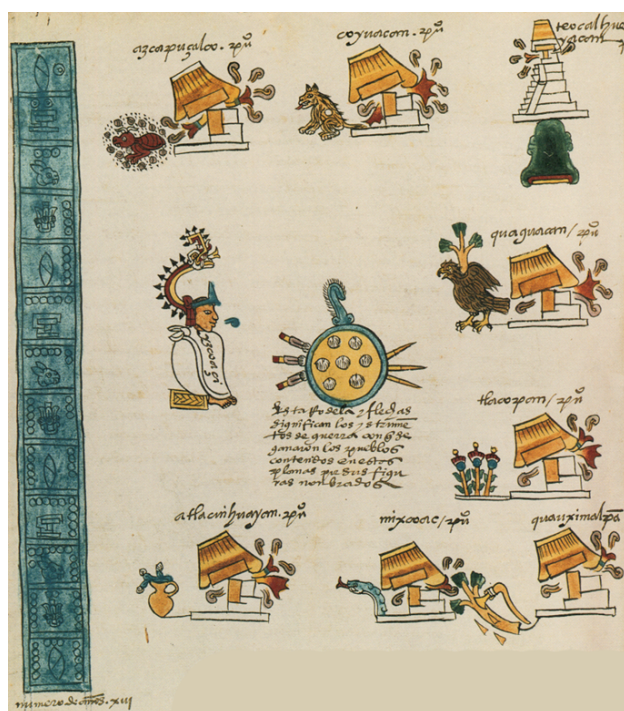 azcapuçalco. pū
coyuacan. pū
teocalhue
yacan
quaguacan / pū
yzcoaçi
Esta Rodela y flechas
significan los ynstrume
tos de guerra con q̄ se
ganaron los pueblos
contenidos en estas
planas por sus figu
ras nonbrados
tlacopan / pū
atlacuihuayan. pū
mixcoac / pū
quauximalpā
numero de años. xiii